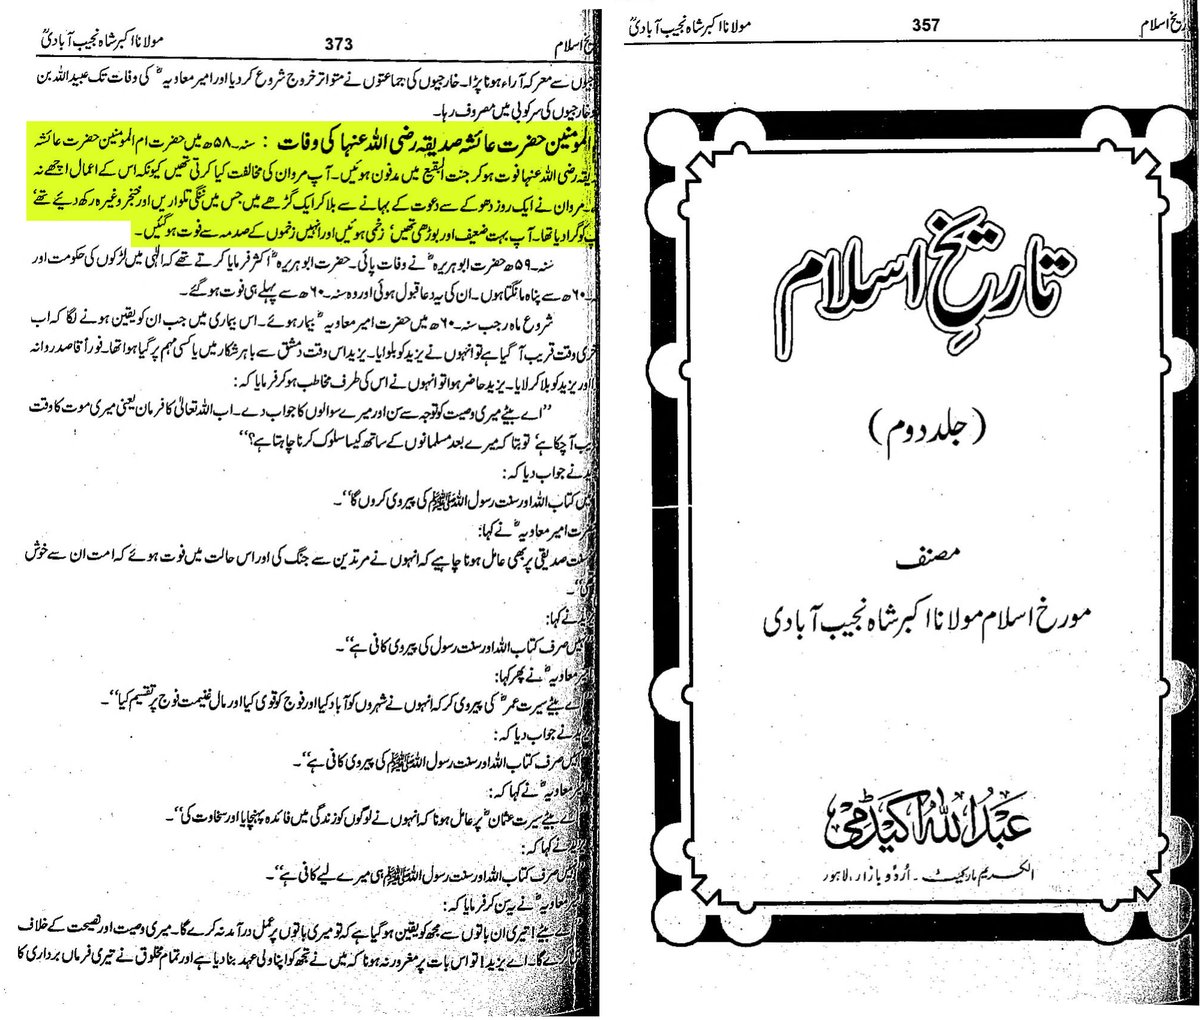 مولانا اکبر شاہ نجیب آبادیؒ 373 اسلام
سے معرکہ آراء ہونا پڑا۔ خارجیوں کی جماعتوں نے متواتر خروج شروع کر دیا اور امیر معاویہؓ کی وفات تک عبیداللہ بن
خارجیوں کی سرکوبی میں مصروف رہا۔
المومنین حضرت عائشہ صدیقہ رضی اللہ عنہا کی وفات : سنہ۔۵۸ھ میں حضرت ام المومنین حضرت عائشہ
یقہ رضی اللہ عنہا فوت ہو کر جنت البقیع میں مدفون ہوئیں۔ آپ مروان کی مخالفت کیا کرتی تھیں کیونکہ اس کے اعمال اچھے نہ
۔ مروان نے ایک روز دھوکے سے دعوت کے بہانے سے بلا کر ایک گڑھے میں جس میں ننگی تلواریں اور خنجر وغیرہ رکھ دیئے تھے
پ کو گرا دیا تھا۔ آپ بہت ضعیف اور بوڑھی تھیں‘ زخمی ہوئیں اور انہیں زخموں کے صدمہ سے فوت ہو گئیں۔
سنہ۔۵۹ھ حضرت ابوہریرہؓ نے وفات پائی۔ حضرت ابوہریرہؓ اکثر فرمایا کرتے تھے کہ الٰہی میں لڑکوں کی حکومت اور
۔۶۰ھ سے پناہ مانگتا ہوں۔ ان کی یہ دعا قبول ہوئی اور وہ سنہ۔۶۰ھ سے پہلے ہی فوت ہو گئے۔
شروع ماہ رجب سنہ۔۶۰ھ میں حضرت امیر معاویہؓ بیمار ہوئے۔ اس بیماری میں جب ان کو یقین ہونے لگا کہ اب
خری وقت قریب آ گیا ہے تو انہوں نے یزید کو بلوایا۔ یزید اس وقت دمشق سے باہر شکار میں یا کسی مہم پر گیا ہوا تھا۔ فوراً قاصد روانہ
اور یزید کو بلا کر لایا۔ یزید حاضر ہوا تو انہوں نے اس کی طرف مخاطب ہو کر فرمایا کہ:
’’اے بیٹے میری وصیت کو توجہ سے سن اور میرے سوالوں کا جواب دے۔ اب اللہ تعالیٰ کا فرمان یعنی میری موت کا وقت
یب آ چکا ہے‘ تو بتا کہ میرے بعد مسلمانوں کے ساتھ کیسا سلوک کرنا چاہتا ہے؟‘‘
ید نے جواب دیا کہ:
میں کتاب اللہ اور سنت رسول اللہ ﷺ کی پیروی کروں گا‘‘۔
رت امیر معاویہؓ نے کہا:
سنت صدیقی پر بھی عامل ہونا چاہیے کہ انہوں نے مرتدین سے جنگ کی اور اس حالت میں فوت ہوئے کہ امت ان سے خوش
‘‘۔
ید نے کہا:
صرف کتاب اللہ اور سنت رسول کی پیروی کافی ہے‘‘۔
یر معاویہؓ نے پھر کہا:
اے بیٹے سیرت عمرؓ کی پیروی کر کہ انہوں نے شہروں کو آباد کیا اور فوج کو قوی کیا اور مال غنیمت فوج پر تقسیم کیا‘‘۔
ید نے جواب دیا کہ:
صرف کتاب اللہ اور سنت رسول اللہ ﷺ کی پیروی کافی ہے‘‘۔
یر معاویہؓ نے کہا کہ:
اے بیٹے سیرت عثمانؓ پر عامل ہونا کہ انہوں نے لوگوں کو زندگی میں فائدہ پہنچایا اور سخاوت کی‘‘۔
نے کہا کہ:
صرف کتاب اللہ اور سنت رسول اللہ ﷺ ہی میرے لیے کافی ہے‘‘۔
معاویہؓ نے یہ سن کر فرمایا کہ:
اے بیٹے! تیری ان باتوں سے مجھ کو یقین ہو گیا ہے کہ تو میری باتوں پر عمل درآمد نہ کرے گا۔ میری وصیت اور نصیحت کے خلاف
کرے گا۔ اے یزید! تو اس بات پر مغرور نہ ہونا کہ میں نے تجھ کو اپنا ولی عہد بنا دیا ہے اور تمام مخلوق نے تیری فرماں برداری کا
مولانا اکبر شاہ نجیب آبادیؒ 357 تاریخ اسلام
تاریخ اسلام
(جلد دوم)
مصنف
مورخ اسلام مولانا اکبر شاہ نجیب آبادی
عبداللہ اکیڈمی
الکریم مارکیٹ ۔ اُردو بازار، لاہور